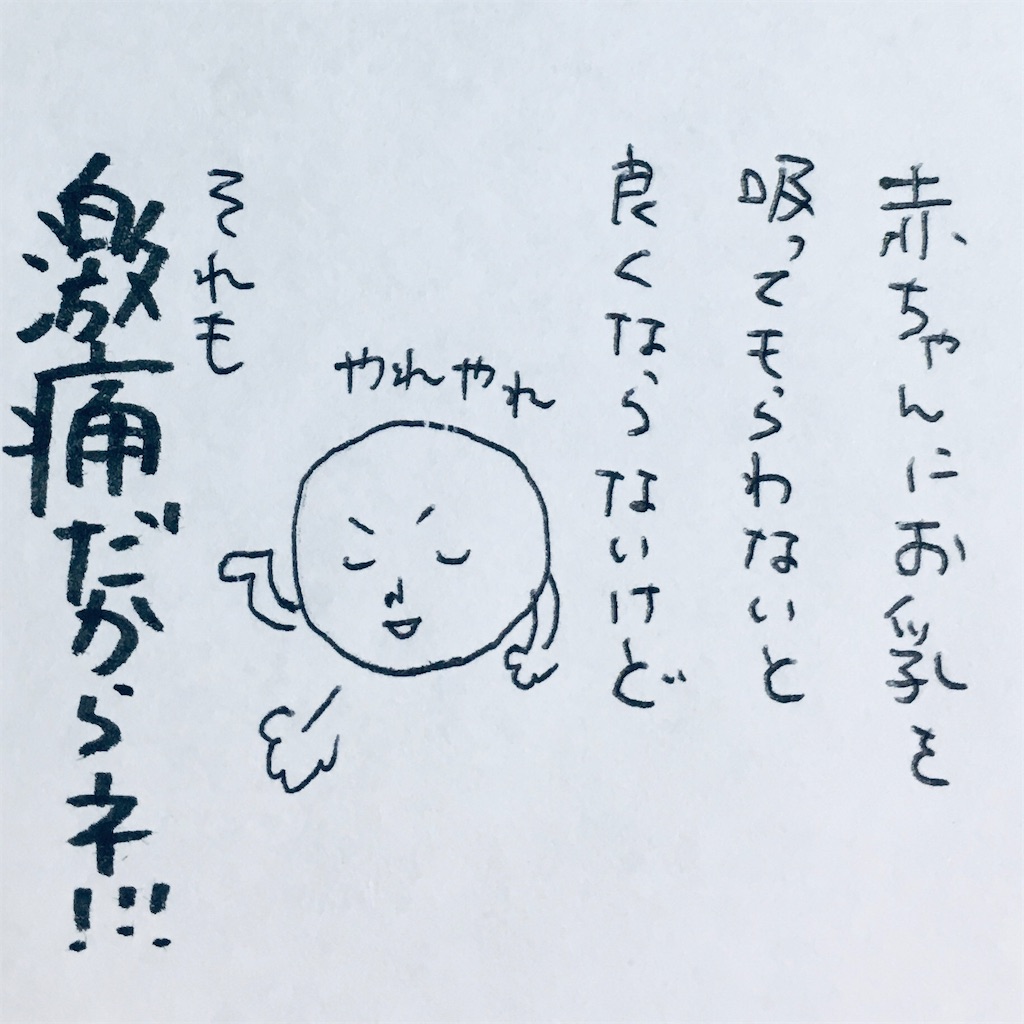 赤ちゃんにお乳を
吸ってもらわないと
良くならないけど
やれやれ
それも
激痛だからネ!!!